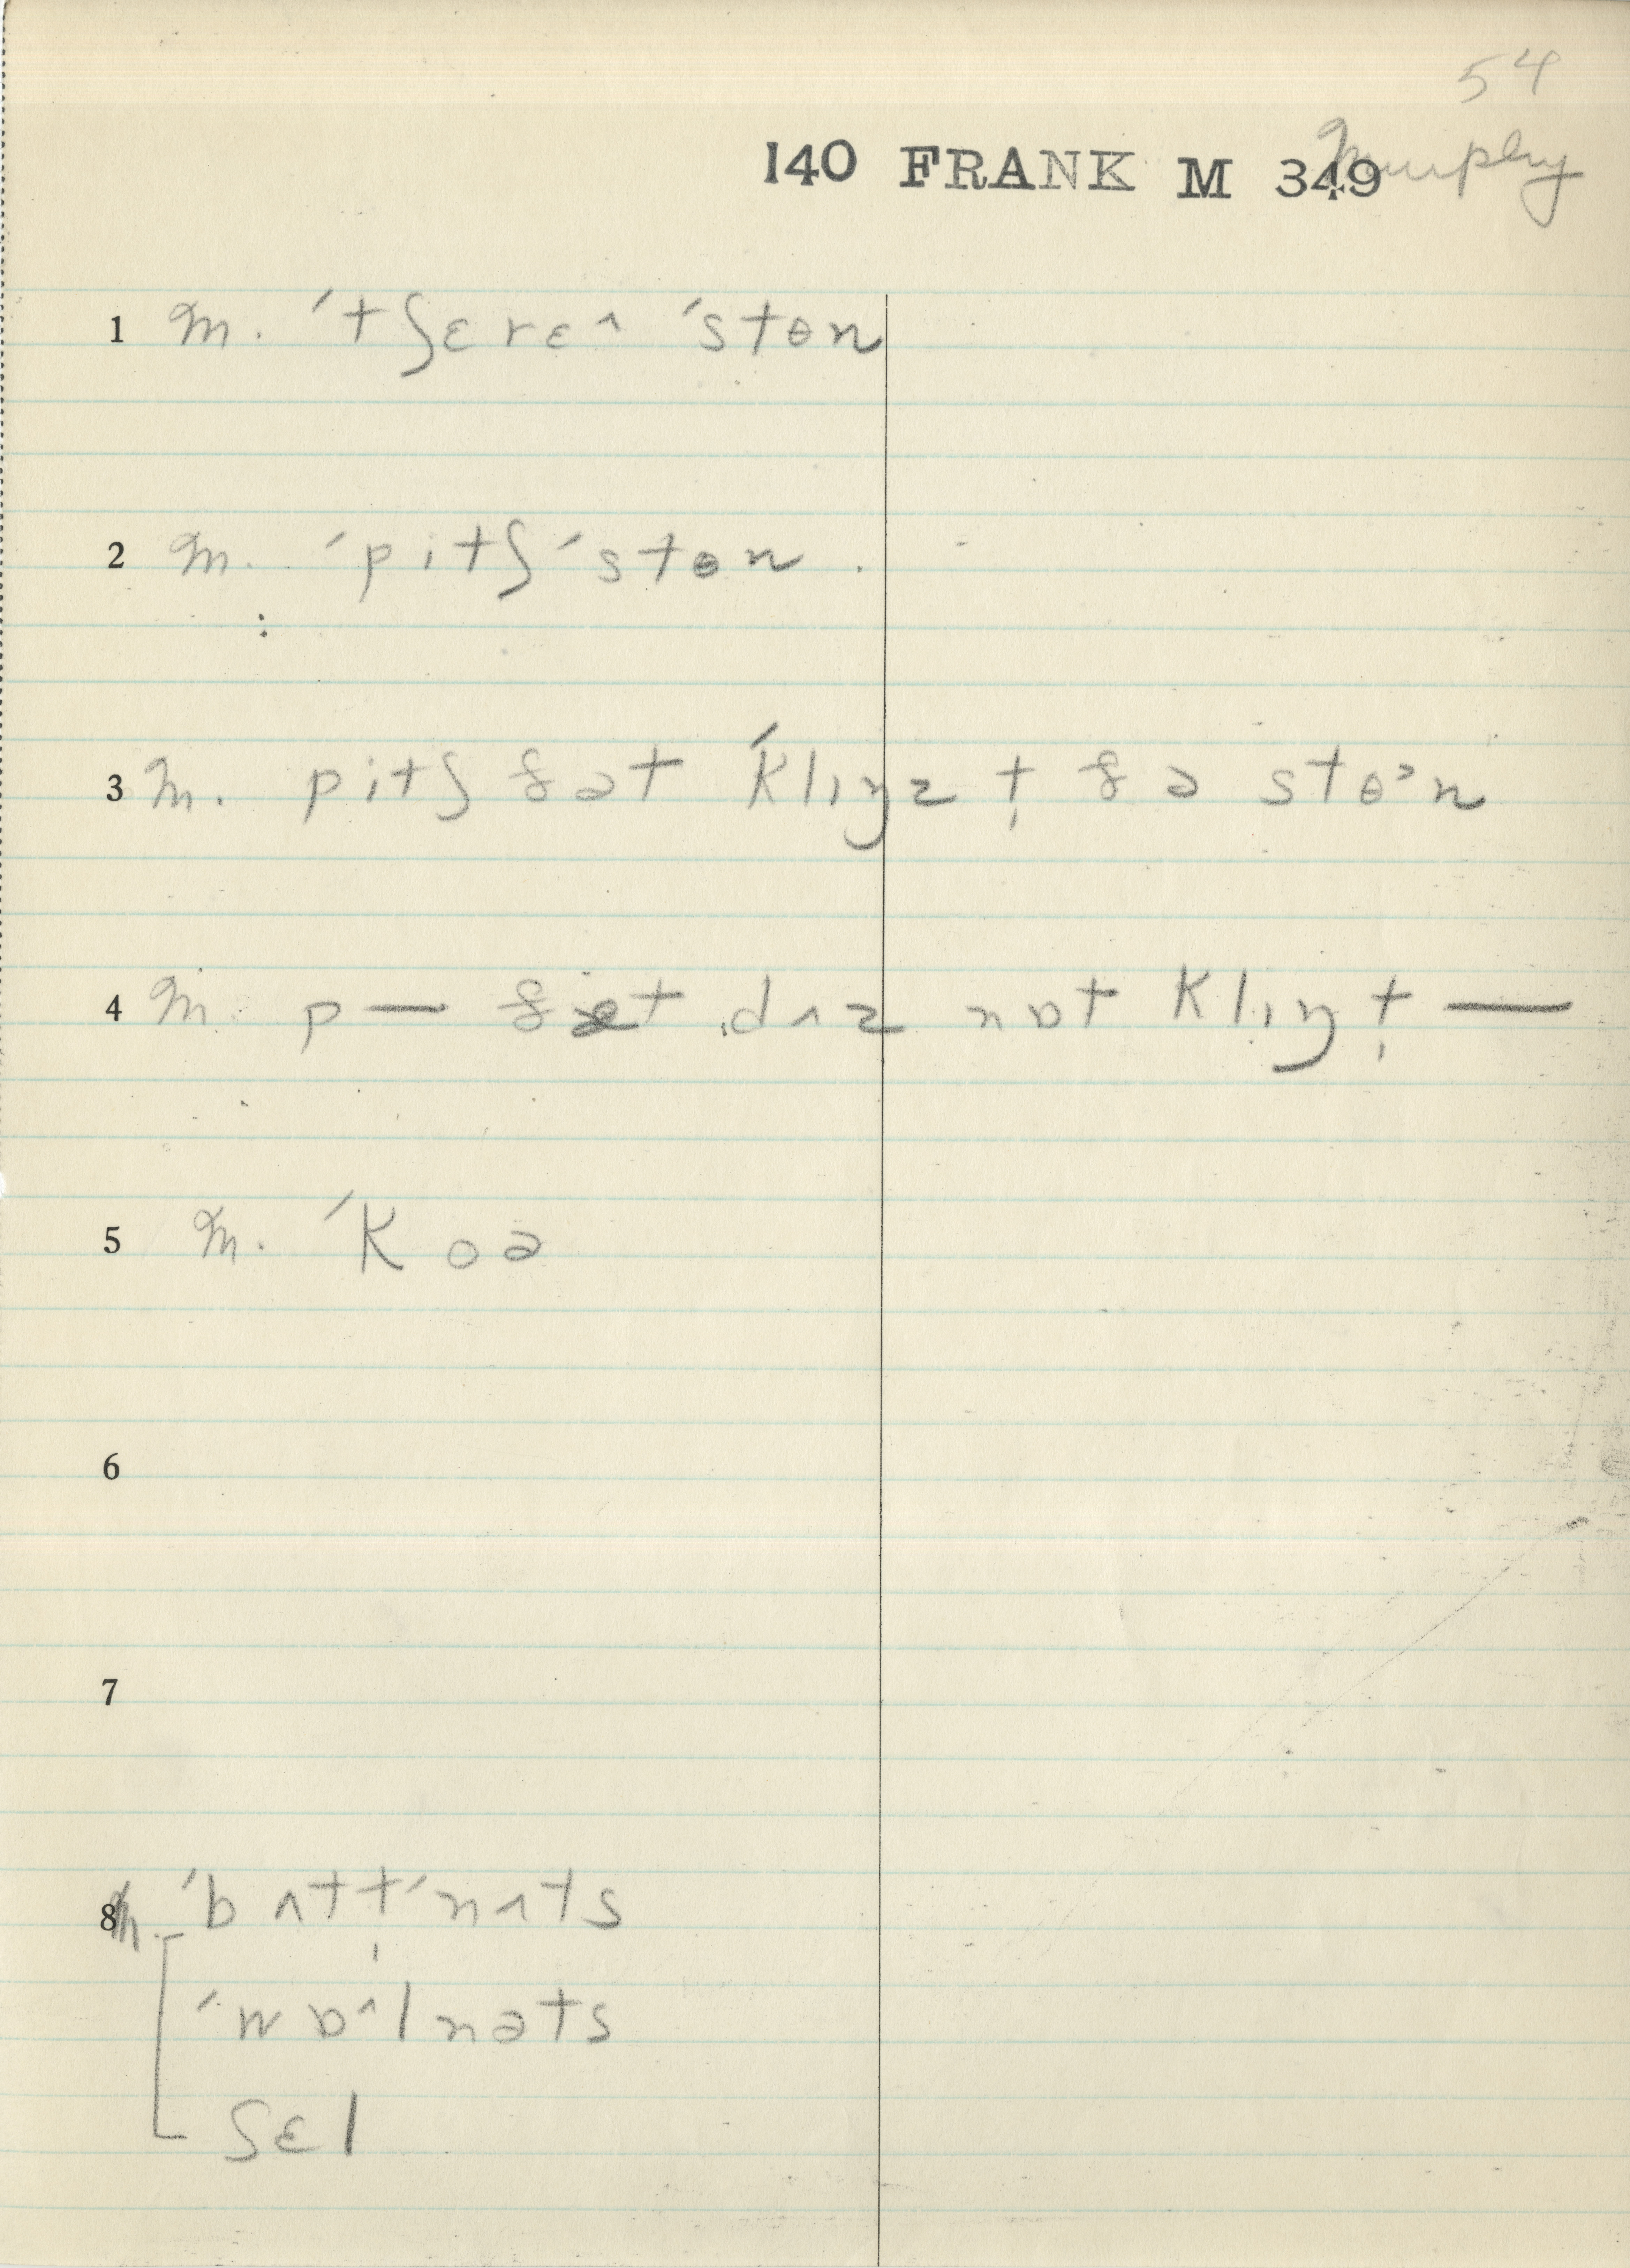 54
140 FRANK M 349 Murphy
1 M. ˈtʃɛrɛ^ ˈstɵn
2 M. ˈpitʃ ˈstɵn.
3 M. pitʃ ðət ˈklɪŋz t̩ ðə stɵᵊn
4 M. p— ðət dʌz nɒt klɪŋ t̩ —
5 M. ˈkoə
6
7
8 M. ˈbʌtt̩ˈnʌts
[ ˈwɒ^lnəts
ʃɛl